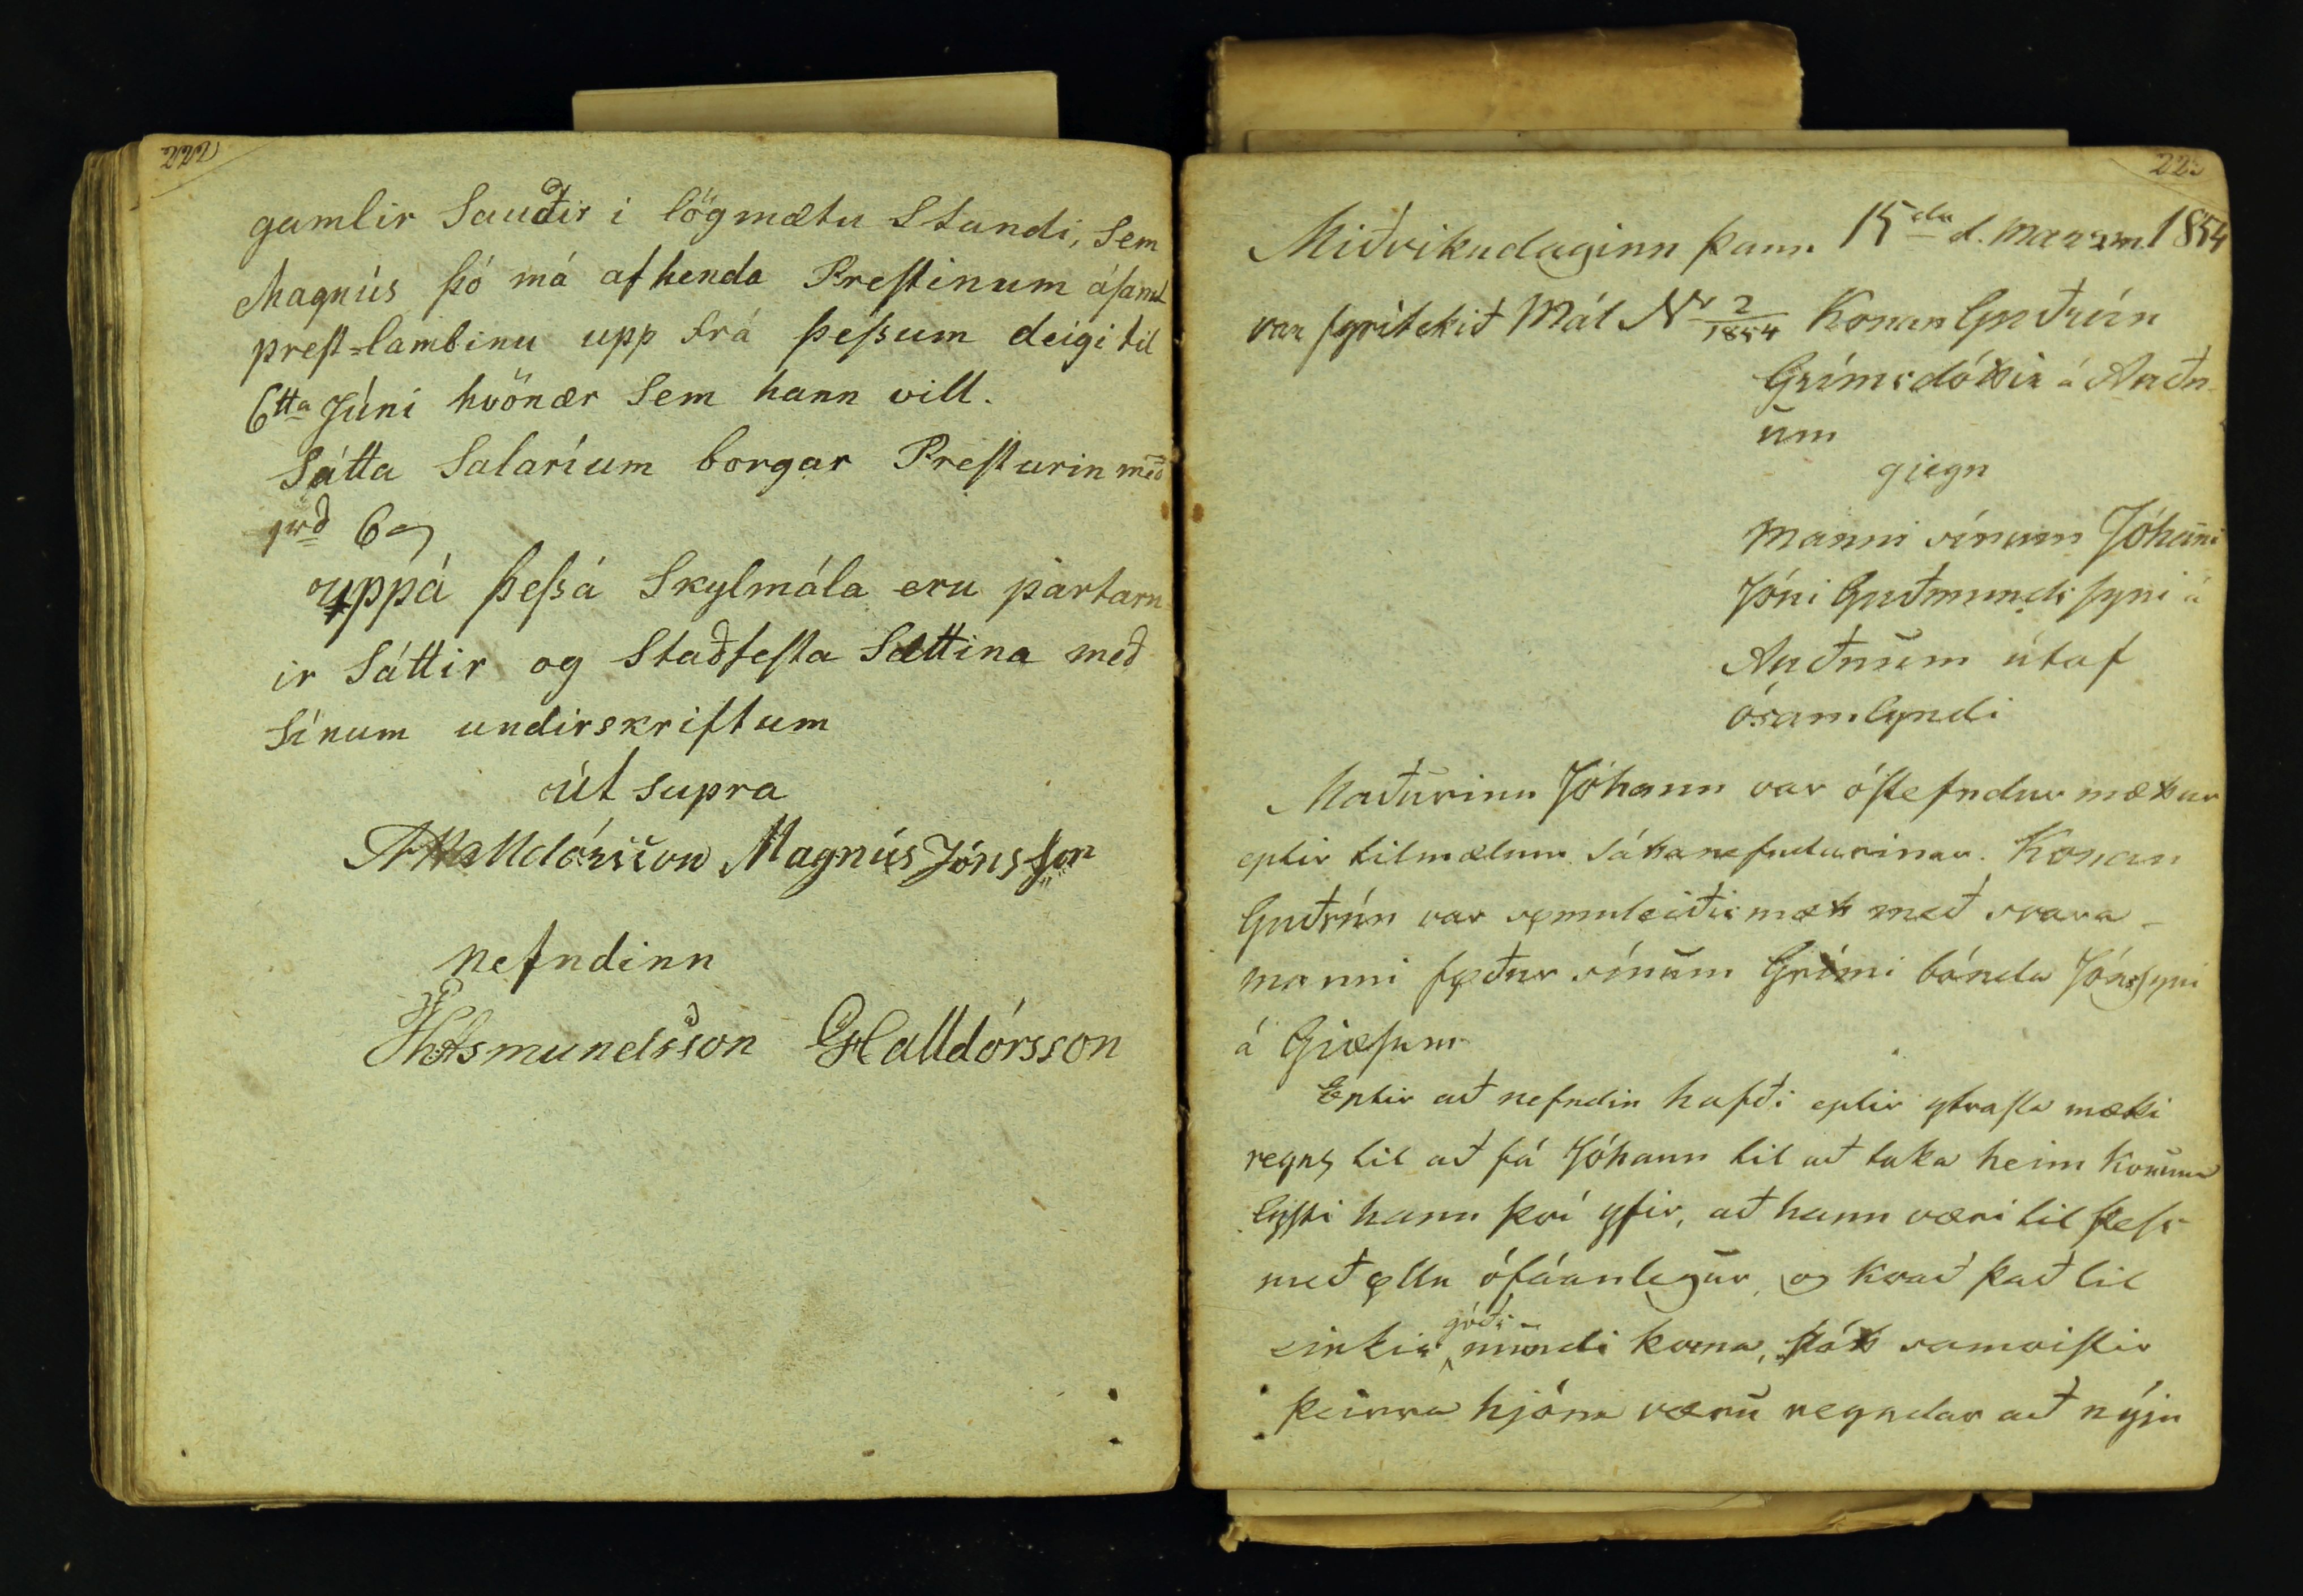 222
gamlir Sauðir i lögmætu Standi, Sem
Magnús þó má afhenda Prestinum ásamt
prest=lambinu upp frá þessum deigi til
6tta Júni hvönær Sem hann vill.
Sátta Salaríum borgar Presturin með
6
uppá þessá Skylmála eru partarn
ir Sáttir og Staðfesta Sættina með
Sínum undirskriftum
út supra
Halldórsson Magnús Jónsson
Nefndinn
Ásmundsson GHalldórsson
Miðvikudaginn þann 15da d. marzm. 1854
var fyritekið Mál Nr 2/1854 Konan Guðrún
Grímsdóttir á Auðn
um
gjegn
Manni sínum Jóhanni
Jóni Guðmundssyni á
Auðnum útaf
ósamlyndi
Maðurinn Jóhann var óstefndur mættur
eptir tilmælum sáttanefndarinnar. Konan
Guðrún var sømuleiðis mætt með svara-
manni føður sínum Grími bónda Jónssyni
á Giæsum
Eptir að nefndin hafði eptir ytrasta mætti
reynt til að fá Jóhann til að taka heim konuna
lýsti hann því yfir, að hann væri til þess
með øllu ófáanlegur, og kvað það til
einkis góðs mundi koma, þótt samvistir
þeirra hjóna væru reyndar að nýju